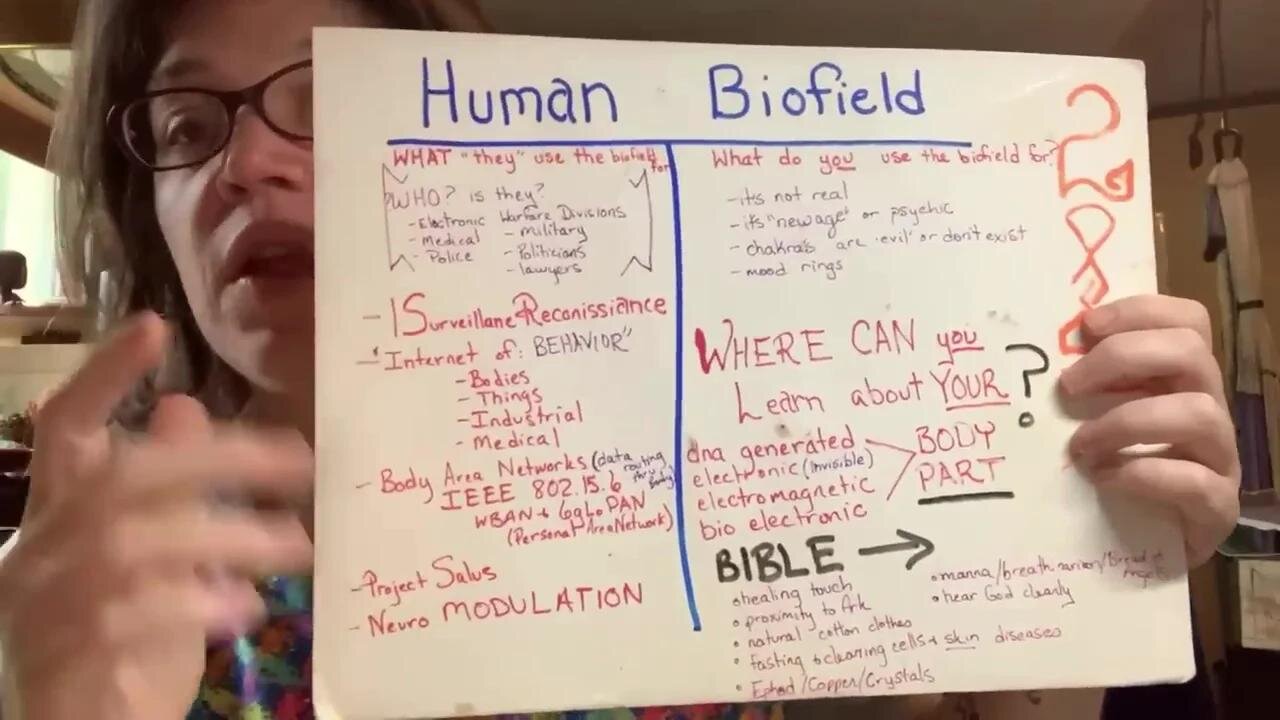 Human Biofield
WHAT "they" use the biofield for
WHO? is they?
- Electronic Warfare Divisions
- Medical - military
- Police - Politicians
- lawyers
- Surveillane Reconissiance
- Internet of: BEHAVIOR"
- Bodies
- Things
- Industrial
- Medical
- Body Area Networks (data routing thru body)
IEEE 802.15.6
WBAN + 6gLoPAN
(Personal Area Network)
- Project Salus
- Neuro MODULATION
What do you use the biofield for?
- its not real
- its "new age" or psychic
- chakra's are 'evil' or don't exist
- mood rings
WHERE CAN you
Learn about YOUR ?
dna generated
electronic (invisible)
electromagnetic
bio electronic
BODY
PART
BIBLE →
• healing touch
• proximity to Ark
• natural cotton clothes
• fasting + clearing cells + skin diseases
• Ephod/Copper/Crystals
• manna/breath /Bread of Angels
• hear God clearly